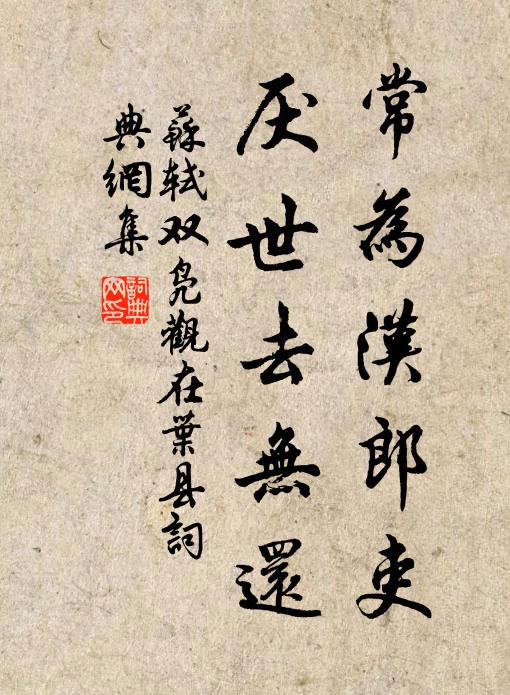 常為漢郎吏
厌世去無還
蘇轼双凫觀在葉县詞
典網集
詞典
网印